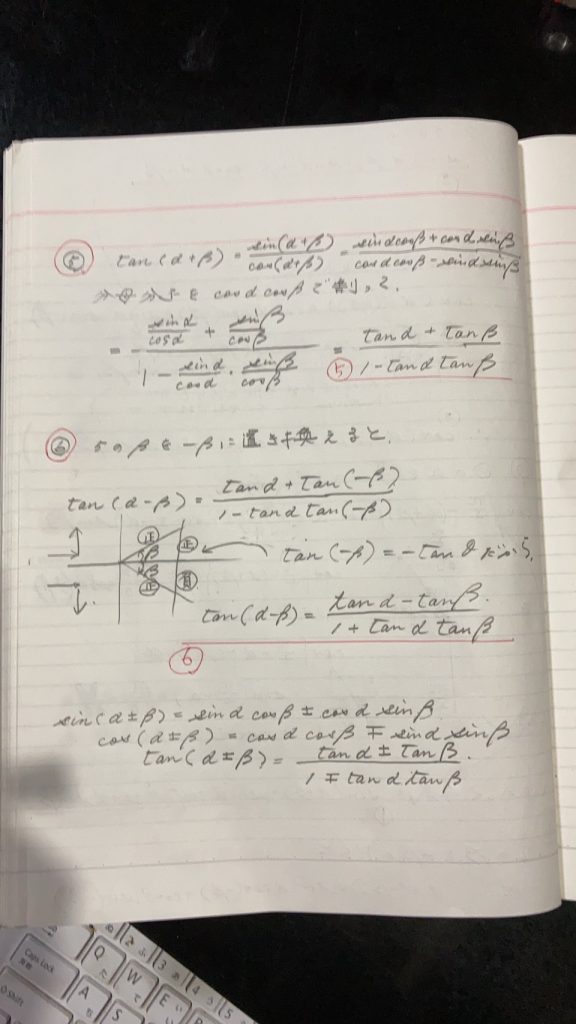 ⑤ tan(α+β) = sin(α+β)/cos(α+β) = (sinαcosβ+cosαsinβ)/(cosαcosβ-sinαsinβ)
分母分子を cosαcosβで割って、
= (sinα/cosα + sinβ/cosβ)/(1 - sinα/cosα・sinβ/cosβ) = (tanα + tanβ)/(1-tanα tanβ)
⑤
⑥ 5のβを-βに置き換えると、
tan(α-β) = (tanα + tan(-β))/(1-tanα tan(-β))
正 正
β
β
正 負
tan(-β) = -tanθ だから、
tan(α-β) = (tanα - tanβ)/(1 + tanα tanβ)
⑥
sin(α±β) = sinα cosβ ± cosα sinβ
cos(α±β) = cosα cosβ ∓ sinα sinβ
tan(α±β) = (tanα ± tanβ)/(1 ∓ tanα tanβ)
Caps Lock
Shift
Q
W
E
A
S
2 ふ
3 あ
4 う
5
た
て
い
ち